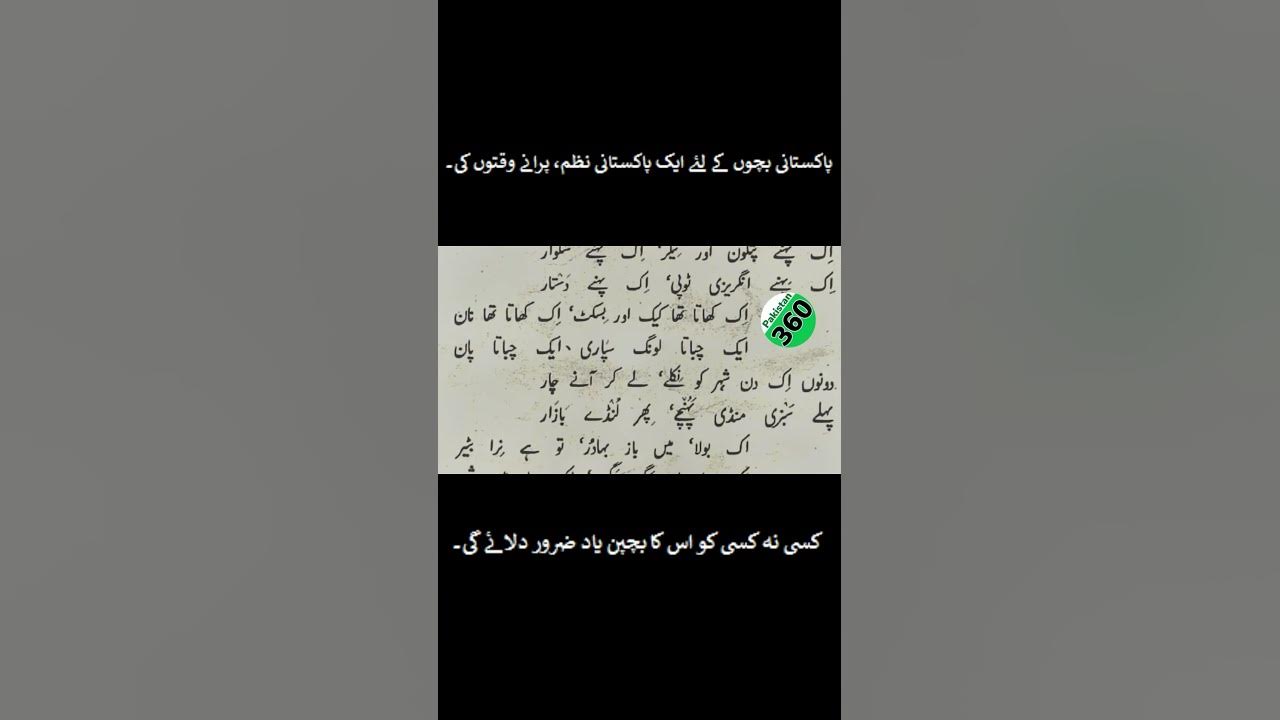 پاکستانی بچوں کے لئے ایک پاکستانی نظم، پرانے وقتوں کی۔
اِک پہنے پتلون اور نیکر، اِک پہنے شلوار
اِک پہنے انگریزی ٹوپی، اِک پہنے دستار
اِک کھاتا تھا کیک اور بسکٹ، اِک کھاتا تھا نان
ایک چباتا لونگ سپاری، ایک چباتا پان
دونوں اِک دن شہر کو نکلے، لے کر آنے چار
پہلے سَبزی منڈی پہنچے، پِھر لُنڈے بازار
اک بولا، میں باز بہادُر، تو ہے نِرا بٹیر
Pakistan
360
کسی نہ کسی کو اس کا بچپن یاد ضرور دلائے گی۔